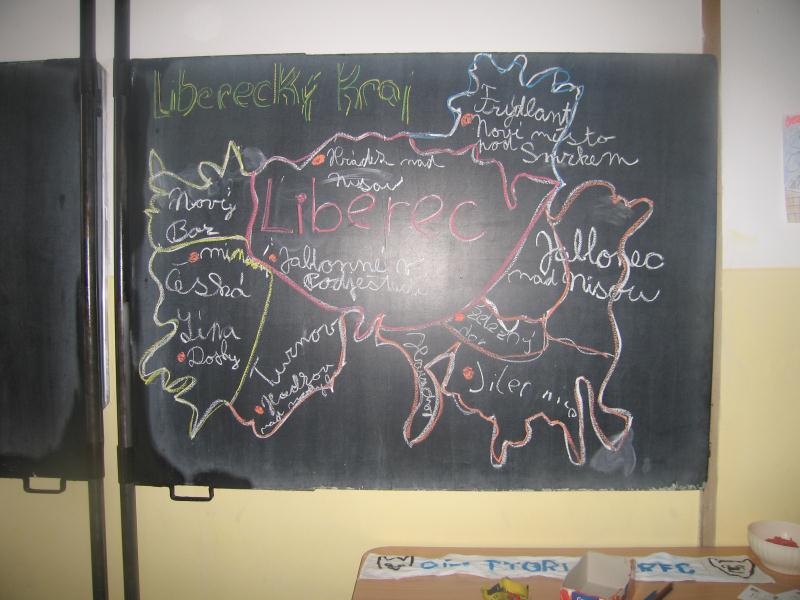 Liberecký Kraj
Frýdlant
Nové město
pod Smrkem
Hradek nad
Nisou
Liberec
Nový
Bor
mimoň
Jablonné v
Podještědí
Jablonec
nad nisou
Česká
Lípa
Doksy
Turnov
železný
Jilemnice